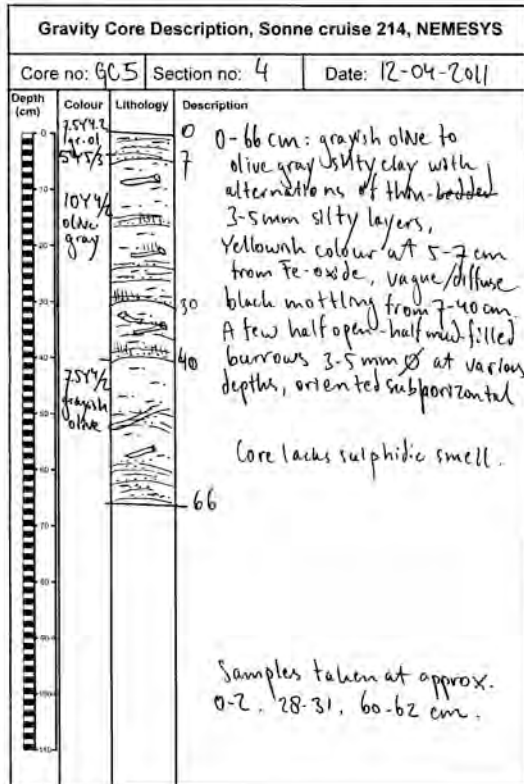 Gravity Core Description, Sonne cruise 214, NEMESYS
Core no: GC5 Section no: 4 Date: 12-04-2011
Depth (cm) Colour Lithology Description
7.5Y4.2
gr.ol
5Y5/3
10Y4/2
olive
gray
7.5Y4/2
grayish
olive
0
10
20
30
40
50
60
70
80
90
100
110
0
7
30
40
66
0-66 cm: grayish olive to
olive gray silty clay with
alternations of thin-bedded
3-5mm silty layers,
Yellowish colour at 5-7 cm
from Fe-oxide, vague/diffuse
black mottling from 7-40 cm.
A few half open-half mud-filled
burrows 3-5 mm Ø at various
depths, oriented subhorizontal
Core lacks sulphidic smell.
Samples taken at approx.
0-2, 28-31, 60-62 cm.